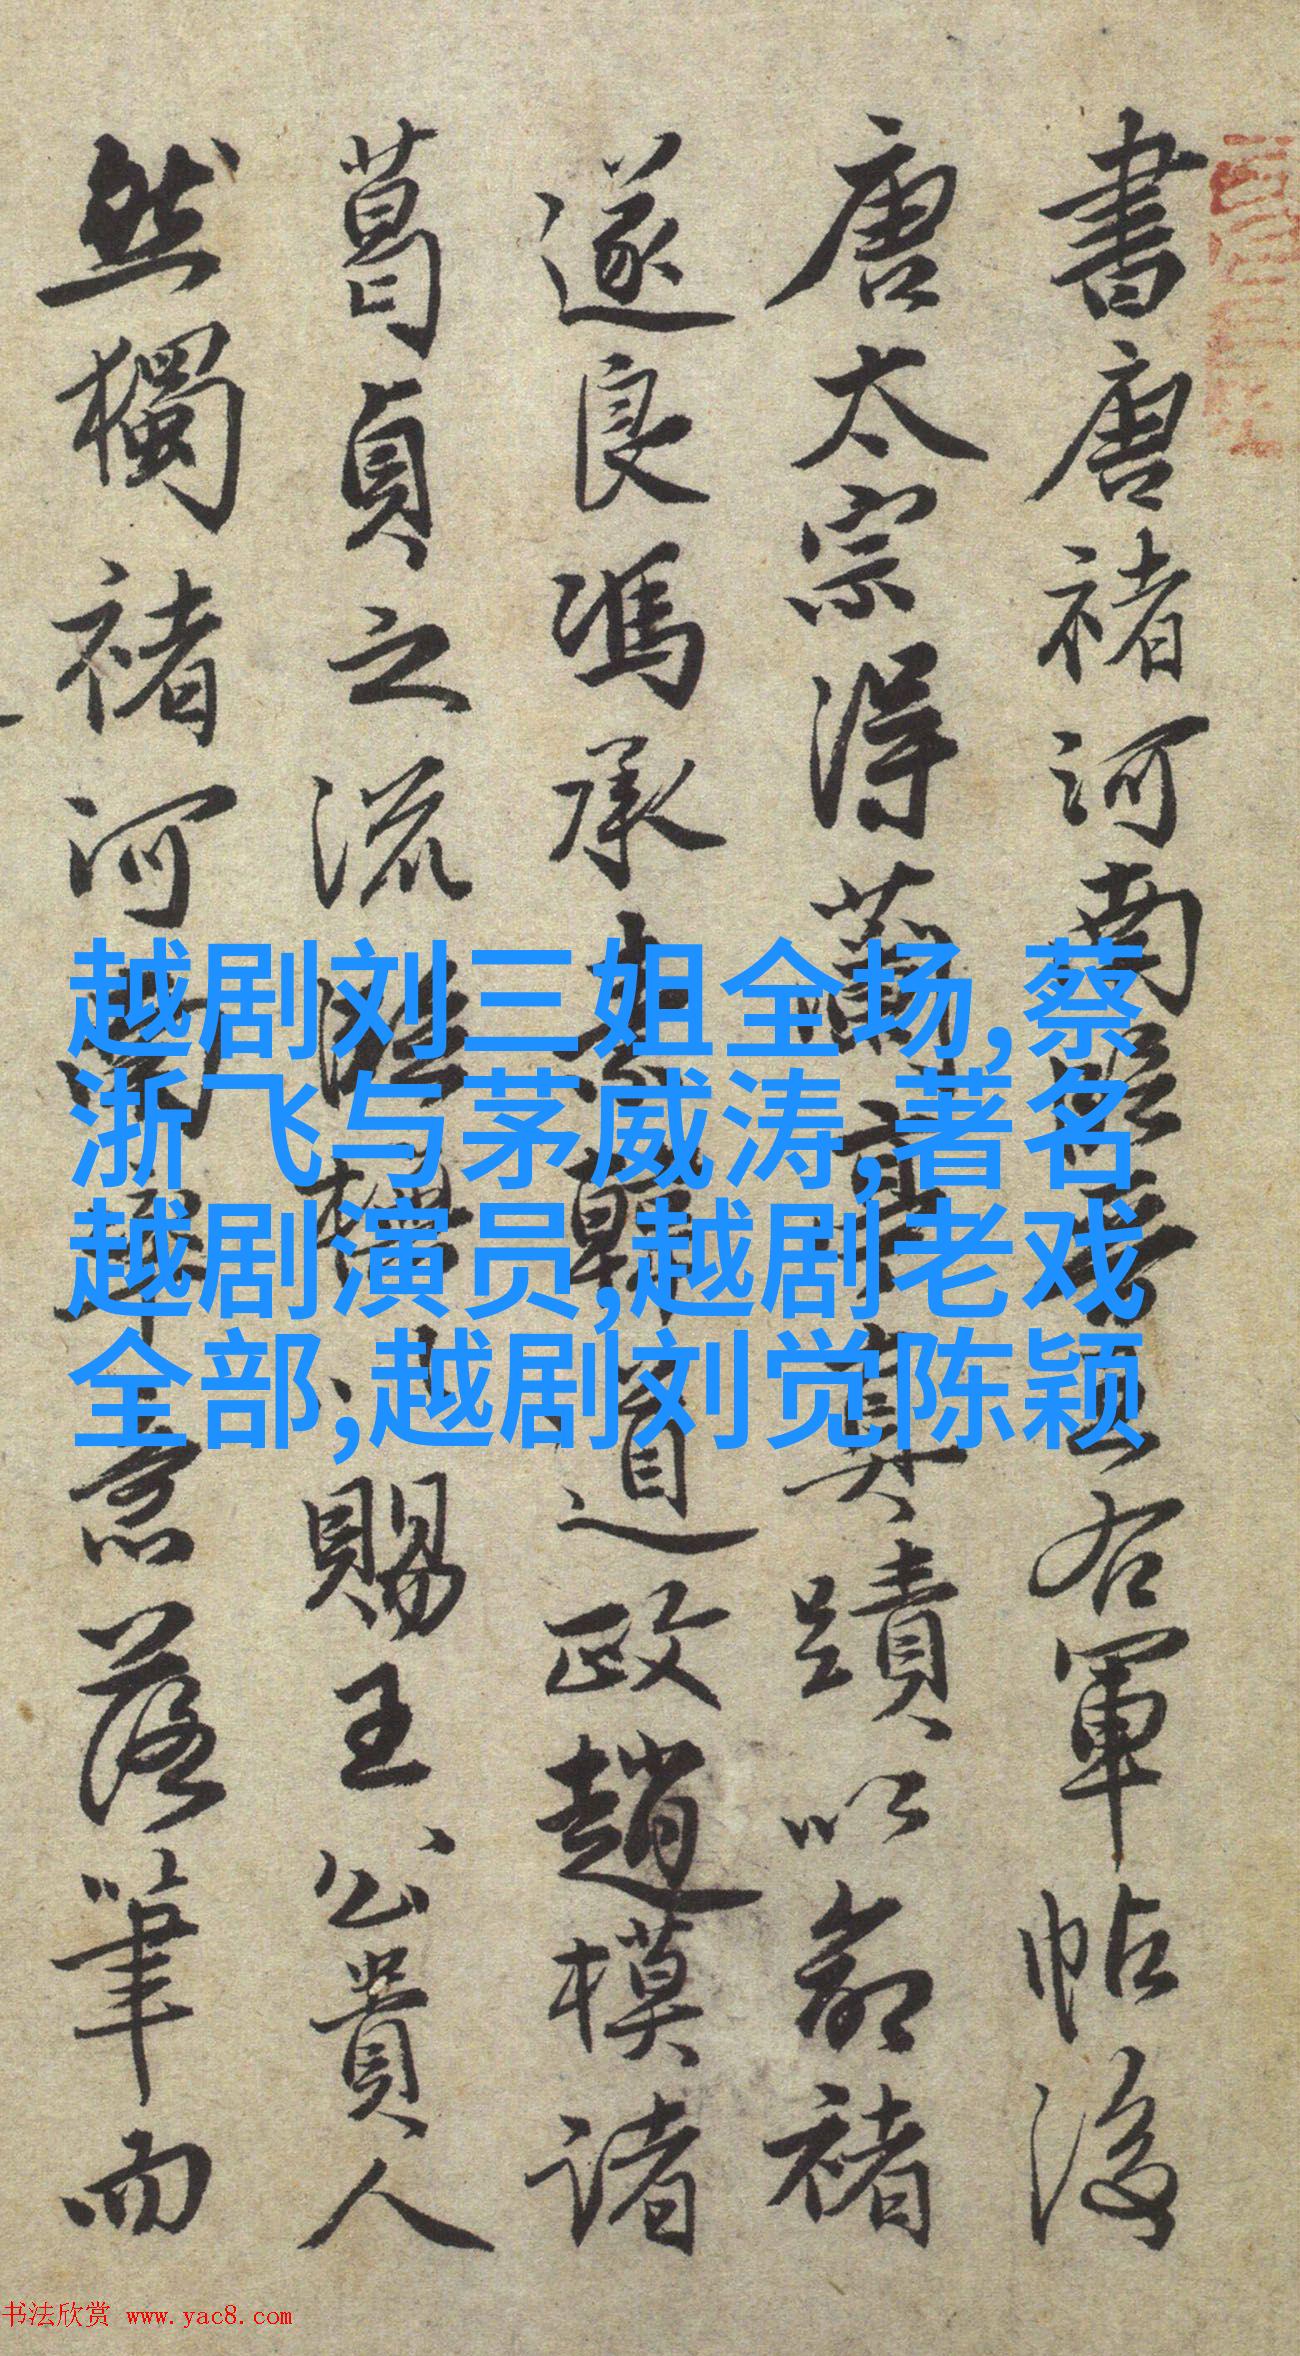 書唐褚河南臨晉王右軍帖後
唐太宗得蘭亭真蹟以命褚
遂良馮承素韓道政趙模諸
葛貞之流賜王公貴人
然獨褚河南率意落筆而
越剧刘三姐全场,蔡
浙飞与茅威涛,著名
越剧演员,越剧老戏
全部,越剧刘觉陈颖
书法欣赏 www.yac8.com